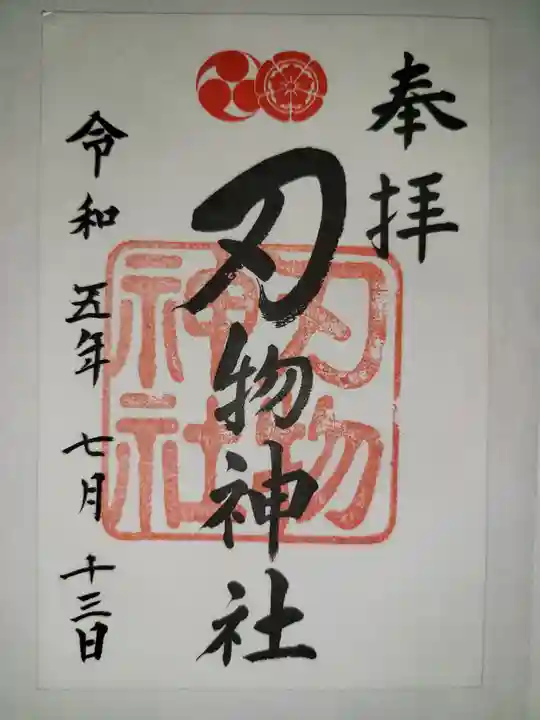 奉拝
刃物神社
刃物
神社
令和五年七月十三日